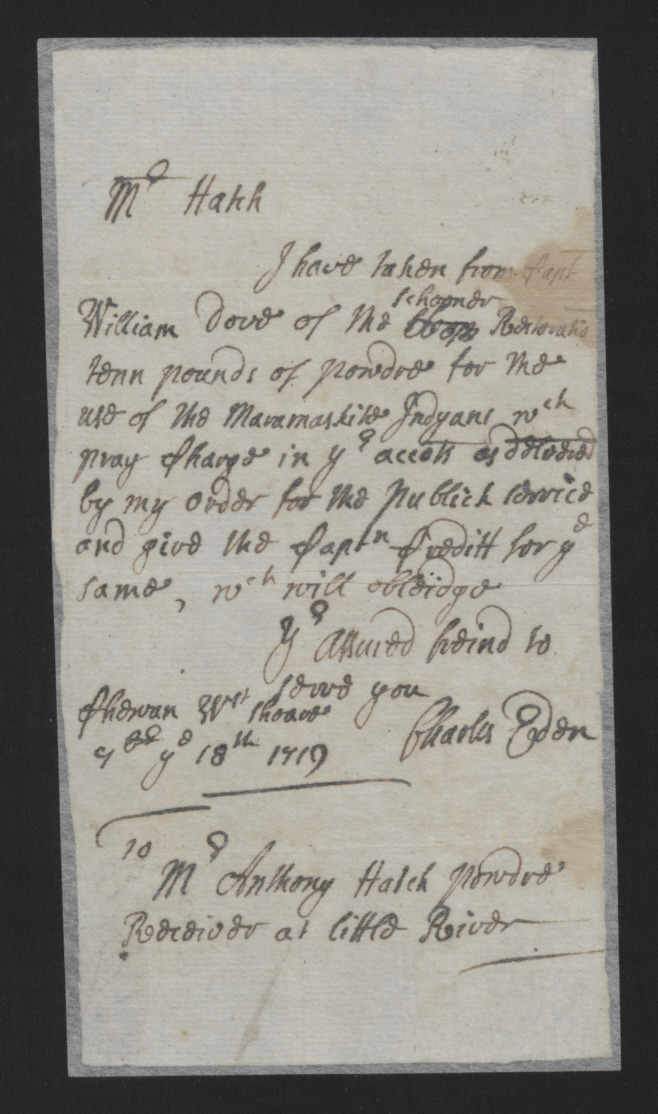 Mr Hatch
I have taken from Capt
schooner
William Dove of the Sloop Restoratio
tenn pounds of powdre for the
use of the Maramaskite Indyans wch
pray Charge in yr accots as delivered
by my order for the publick service
and give the Captn Creditt for ye
same, wch will obleidge
yr assured freind to
serve you
Chowan Wst shoare
7br ye 18th 1719
Charles Eden
To
Mr Anthony Hatch powdre
Receiver at little River